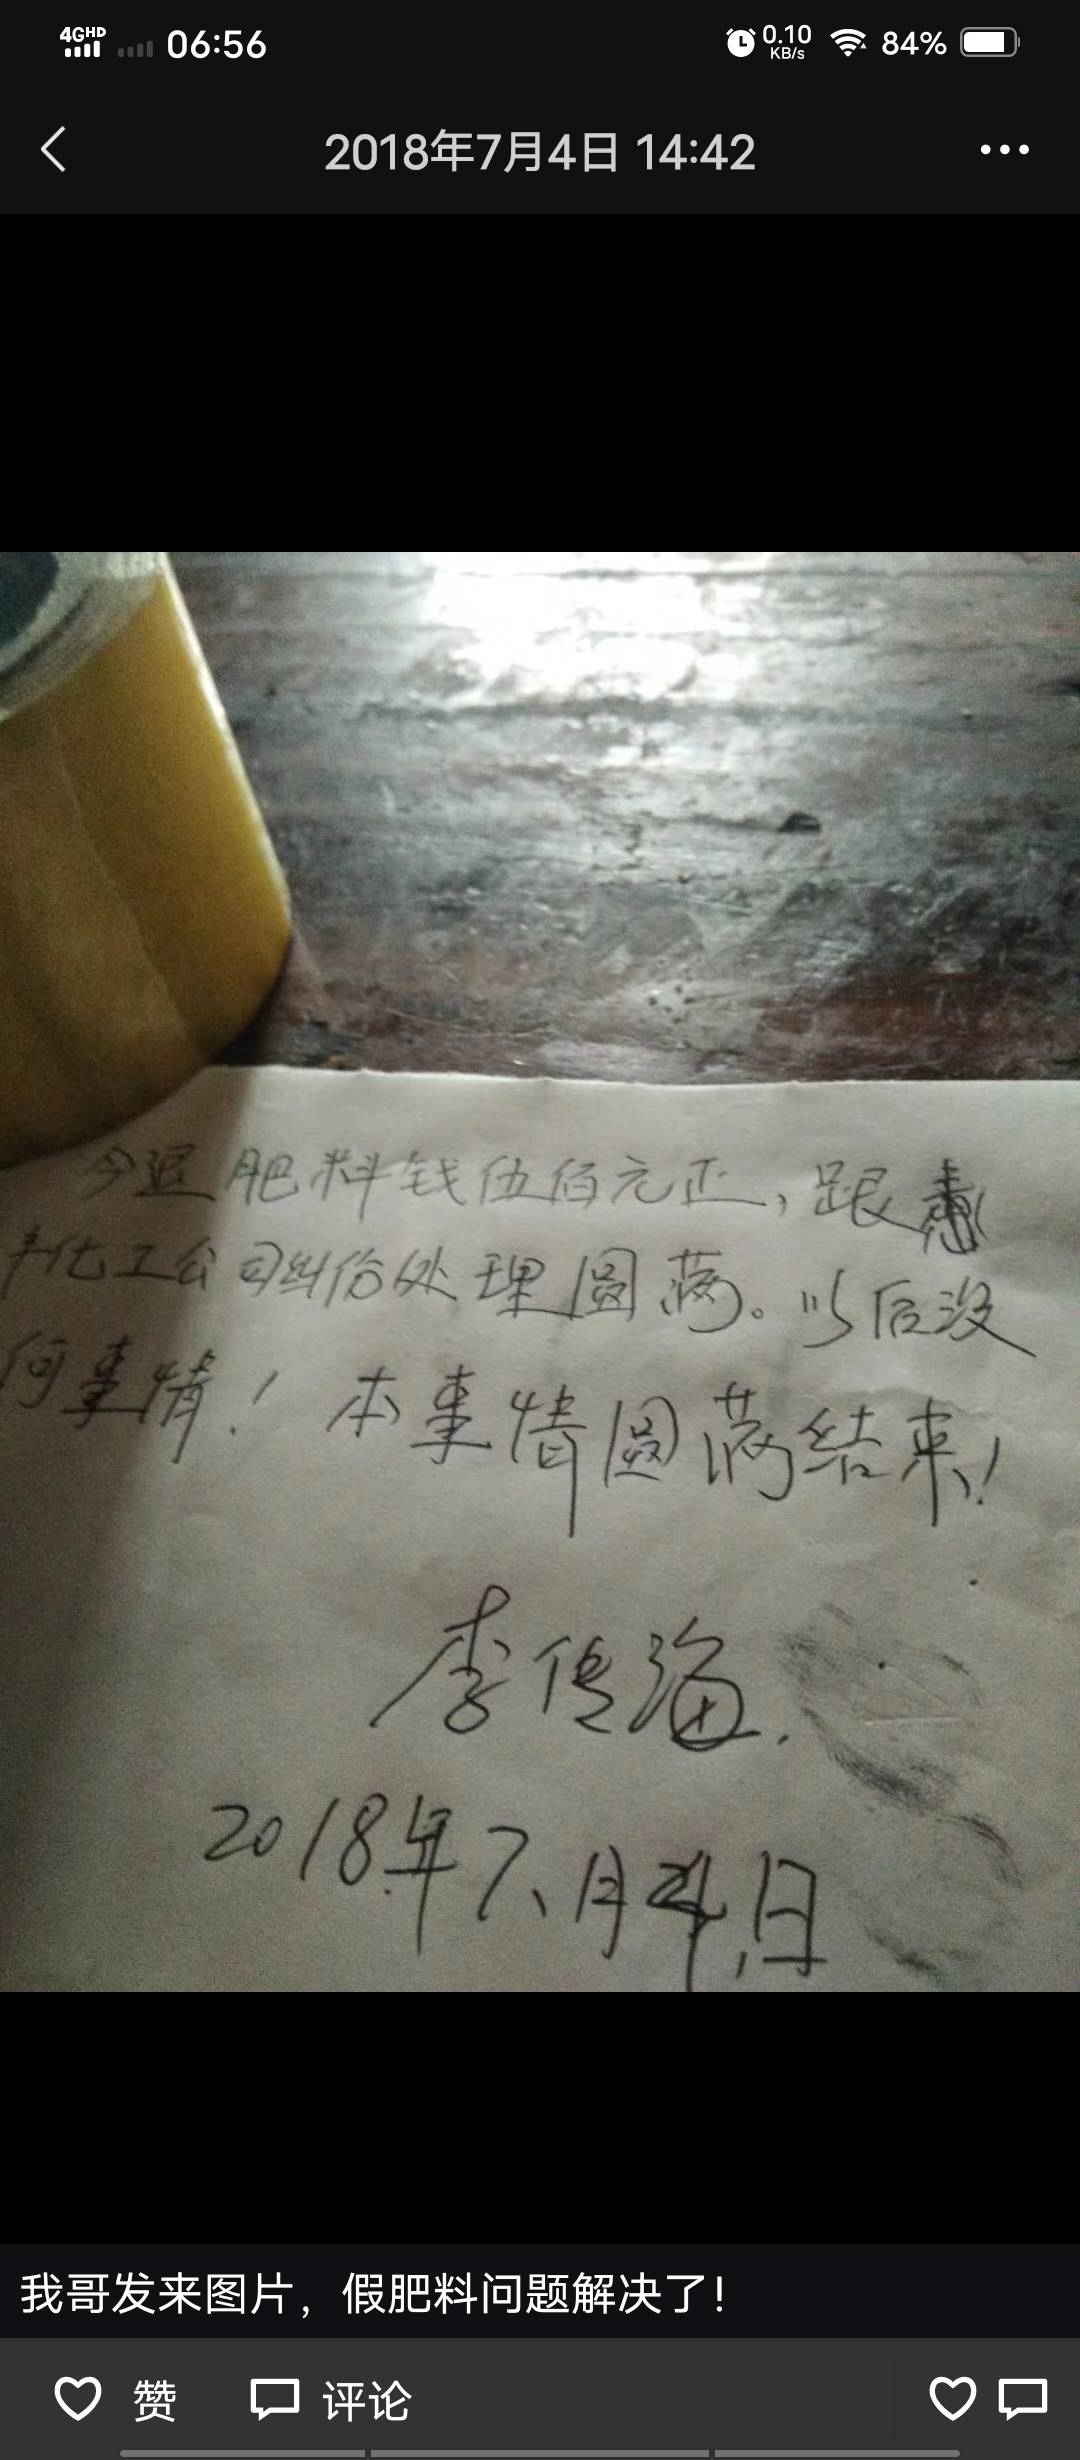 4GHD 06:56 0.10 KB/s 84%
2018年7月4日 14:42
今退肥料钱伍佰元正，跟
丰化工公司纠纷处理圆满。以后没
何事情！本事情圆满结束！
李传海.
2018年六月 日
我哥发来图片，假肥料问题解决了！
赞 评论